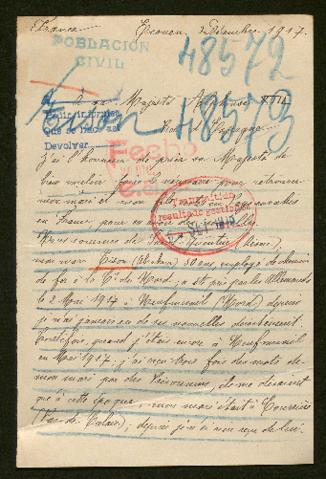 France Ecouen, Décembre 1917.
POBLACION
CIVIL
48572
48573
à sa Majesté Alphonse XIII
Roi d'Espagne
Devolver
Fecho
J'ai l'honneur de prier sa Majesté de
bien vouloir faire le nécessaire pour retrouver
mon mari et mon
en France pour en avoir des nouvelles.
Nous sommes de Saint Quentin (Aisne),
mon mari 50 ans, employé de chemin
de fer à la Cie du Nord, a été pris par les Allemands
le 2 Mai 1917 à (Nord) depuis
je n'ai jamais eu de ses nouvelles directement.
Toutefois, quand j'étais encore à
en Mai 1917, j'ai reçu trois fois des mots de
mon mari par des ils me disaient
que à cette époque mon mari était à Courrières
(Pas de Calais), depuis je n'ai rien reçu de lui.